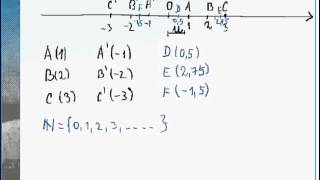 C' B' F A' O D A B E C
-3 -2 -1,5 -1 0 0,5 1 2 2,75 3
A(1) A'(-1) D(0,5)
B(2) B'(-2) E(2,75)
C(3) C'(-3) F(-1,5)
ℕ={0,1,2,3,.....}